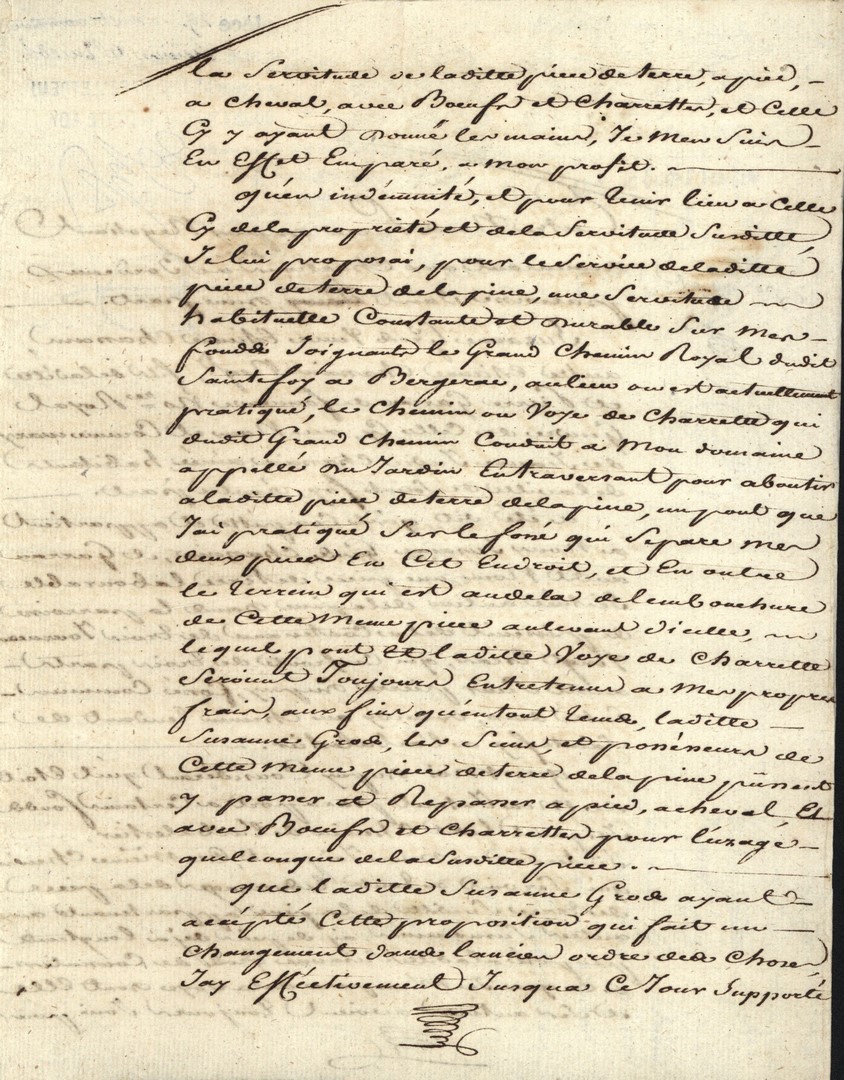 la Servitude de laditte piece de terre, a pied, –
a cheval, avec Boeufs et Charrettes, et Celle
Cy y ayant donné les mains, Je Men Suis
En Effet Emparé, a mon profit.
qu'en indémnité, et pour tenir lieu a Celle
Cy de la proprieté et de la Servitude Susditte,
Je lui proposai, pour le Service de laditte
piece de terre de lapine, une Servitude
habituelle Constante et durable Sur Mes
fonds Joignants le Grand Chemin Royal dudit
Sainte foy a Bergerac, au lieu ou est actuellement
pratiqué, le Chemin ou Voye de Charrette qui
dudit Grand Chemin Conduit a Mon domaine
appellé du Jardin En traversant pour aboutir
a laditte piece de terre de lapine, un pont que
J'ai pratiqué Sur le fossé qui Separe mes
deux pieces En Cet Endroit, et En outre
le terrein qui est au dela de l'embouchure
de Cette Meme piece au levant d'icelle,
lequel pont Et laditte Voye de Charrette
Seroint Toujours Entretenus a Mes propres
frais, aux fins qu'en tout tems, laditte
Susanne Grod, les Siens, et possésseurs de
Cette Meme piece de terre de lapine puissent
y passer et Repasser a pied, a cheval Et
avec Boeufs et Charrettes pour l'uzagé
quelconque de la Susditte piece.
que laditte Susanne Grod ayant
accépté Cette proposition qui fait un
changement dans l'ancien ordre des Choses,
J'ay Efféctivement Jusqua Ce Jour Supporté